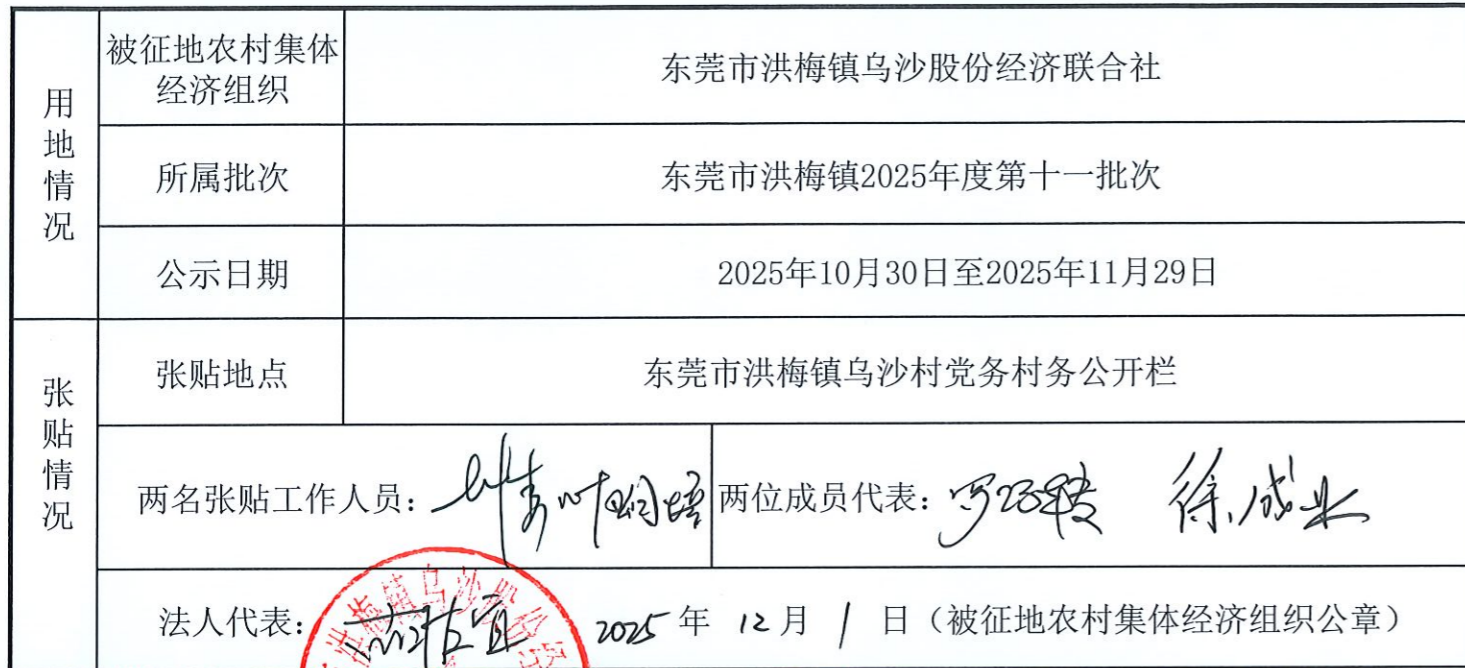 用地情况
被征地农村集体
经济组织
东莞市洪梅镇乌沙股份经济联合社
所属批次
东莞市洪梅镇2025年度第十一批次
公示日期
2025年10月30日至2025年11月29日
张贴情况
张贴地点
东莞市洪梅镇乌沙村党务村务公开栏
两名张贴工作人员：
两位成员代表： 徐成业
法人代表： 2025 年 12 月 1 日（被征地农村集体经济组织公章）
梅镇乌沙股份